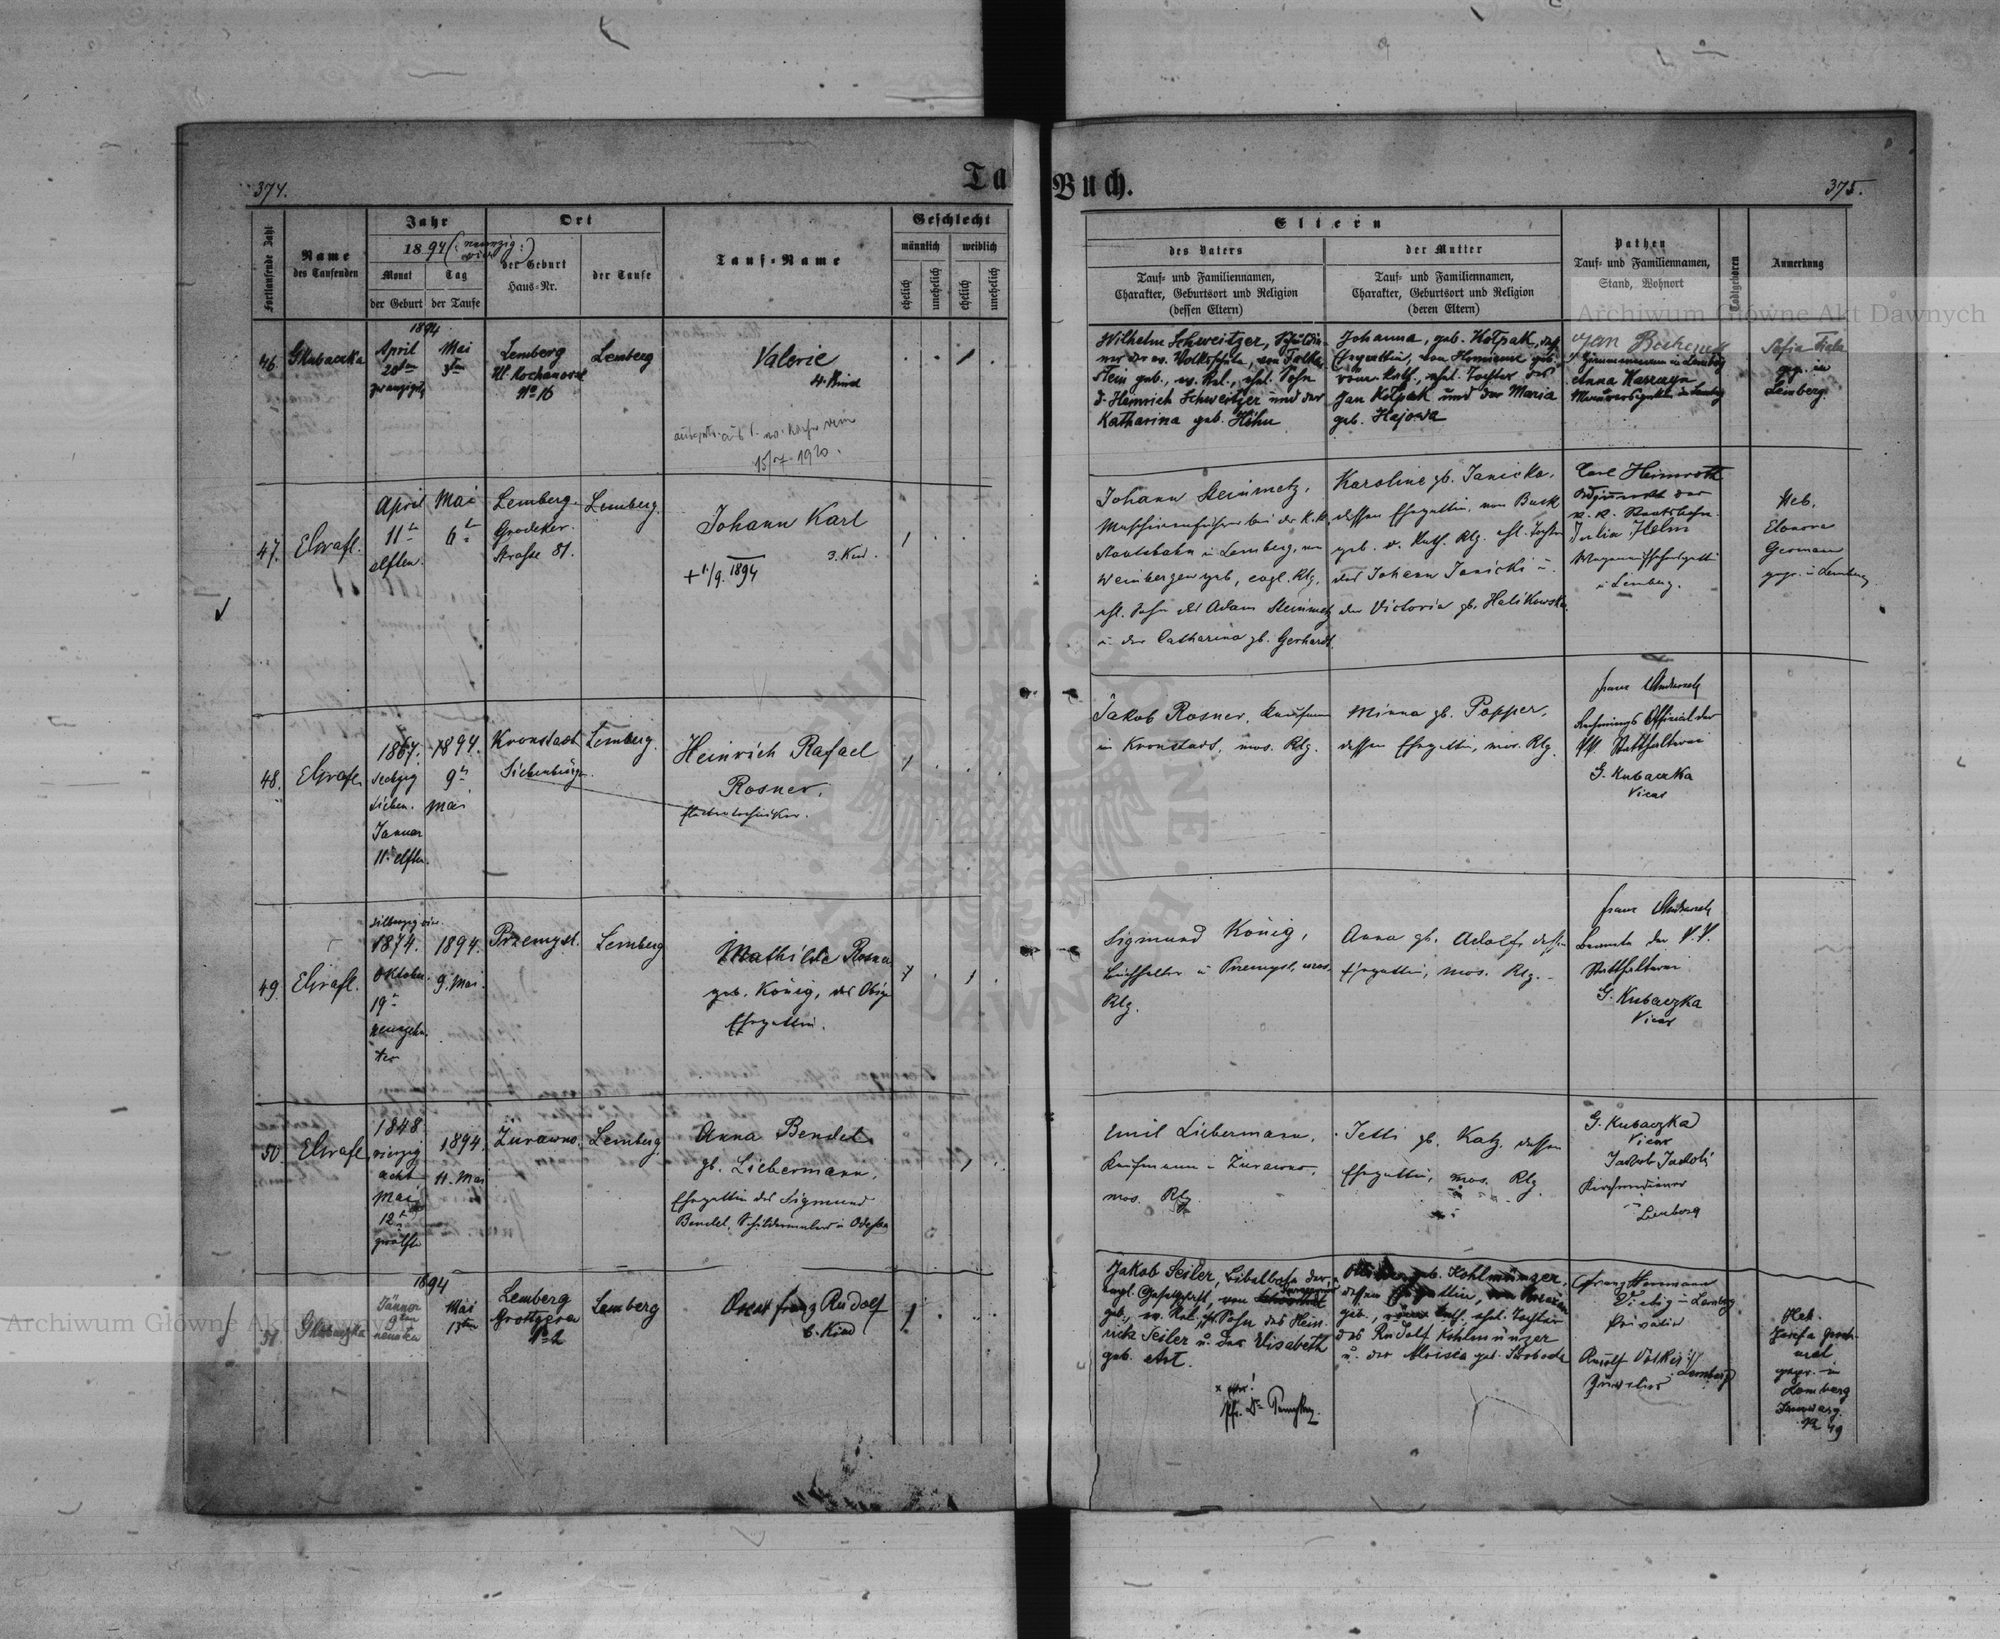 374.
Ta
Buch.
375.
Fortlaufende Zahl
Name
des Taufenden
Jahr
1894 (: neunzig vier :)
Monat
Tag
der Geburt
der Taufe
Ort
der Geburt
Haus-Nr.
der Taufe
Tauf-Name
Geschlecht
männlich
weiblich
ehelich
unehelich
ehelich
unehelich
Eltern
des Vaters
Tauf- und Familiennamen,
Charakter, Geburtsort und Religion
(dessen Eltern)
der Mutter
Tauf- und Familiennamen,
Charakter, Geburtsort und Religion
(deren Eltern)
Pathen
Tauf- und Familiennamen,
Stand, Wohnort
Todtgeboren
Anmerkung
46.
GKubaczka
1894
April
20ten
zwanzigsten
Mai
3ten
Lemberg
Ul. Kochanowski
No 16
Lemberg
Valerie
4. Kind
15/ 1920.
Wilhelm Schweitzer, Schuldie-
ner der ev. Volksschule, von Falken-
stein geb., ev. Rel., ehel. Sohn
d. Heinrich Schweitzer und der
Katharina geb. Höhn
Johanna, geb. Kolpak, dess.
Ehegattin, von geb.
röm. kath., ehel. Tochter des
Jan Kolpak und der Maria
geb. Hajowa
Jan Bochenek
in Lemberg
Anna
in Lemberg
Sofia Fiala
gepr. in
Lemberg
47.
EGrafl.
April
11t
elften.
Mai
6t
Lemberg.
Grodeker-
strasse 81.
Lemberg.
Johann Karl
3. Kind.
+ 1/9. 1894
Johann Steinmetz,
Maschinenführer bei der K.K.
Staatsbahn in Lemberg, von
Weinbergen geb., evgl. Rlg.,
ehl. Sohn des Adam Steinmetz
u. der Catharina gb. Gerhardt.
Karoline gb. Janicka,
dessen Ehegattin, von Busk
geb. r. kath. Rlg. ehl. Tochter
des Johann Janicki u.
der Victoria gb. Halikowska.
Carl Heimroth
der
k. k. Staatsbahn.
Julia Helm
in Lemberg.
Heb.
Eleonora
Germann
gepr. in Lemberg
48.
EGrafl.
1867.
sechzig
sieben.
Januar
11. elften.
1894.
9t
Mai
Kronstadt
Siebenbürgen.
Lemberg.
Heinrich Rafael
Rosner,
Elektrotechniker.
Jakob Rosner, Kaufmann
in Kronstadt, mos. Rlg.
Minna gb. Popper,
dessen Ehegattin, mos. Rlg.
Franz
Rechnungs Official der
k.k. Statthalterei
G. Kubaczka
Vicar
49.
EGrafl.
siebenzig vier.
1874.
Oktober.
19t
neunzehn-
ter
1894.
9. Mai.
Przemysl.
Lemberg
Mathilde Rosner
geb. König, des Obigen
Ehegattin.
Sigmund König,
Buchhalter in Przemysl, mos.
Rlg.
Anna gb. Adolf, dessen
Ehegattin, mos. Rlg.
Franz
Beamte der k.k.
Statthalterei
G. Kubaczka
Vicar
50.
EGrafl.
1848
vierzig
acht
Mai
12t
zwölften
1894.
11. Mai
Żurawno.
Lemberg.
Anna Bendel
gb. Liebermann,
Ehegattin des Sigmund
Bendel, Schildermaler in Odessa
Emil Liebermann,
Kaufmann in Żurawno,
mos. Rlg.
Jetti gb. Katz, dessen
Ehegattin, mos. Rlg.
G. Kubaczka
Vicar
Jakob
Kirchendiener
Lemberg
51.
GKubaczka
1894
Jänner
9ten
neunten
Mai
13ten
Lemberg
Grottgera
No 2
Lemberg
Oscar Franz Rudolf
6. Kind
Jakob Seiler, Bibelbote der
engl. Gesellschaft, von
geb., ev. Rel., ehl. Sohn des Hein-
rich Seiler u. der Elisabeth
geb. Art.
geb. Kohlmünzer,
dessen Ehegattin,
geb., röm. kath., ehel. Tochter
des Rudolf Kohlmünzer
u. der Aloisia geb. Swoboda
Franz Herrmann
in Lemberg
Privatier
Rudolf Völker
Lemberg
Juwelier
Heb.
Josefa
gepr. in
Lemberg
No 49
Archiwum Główne Akt Dawnych
Archiwum Główne Akt Dawnych
ARCHIWUM GŁÓWNE AKT DAWNYCH